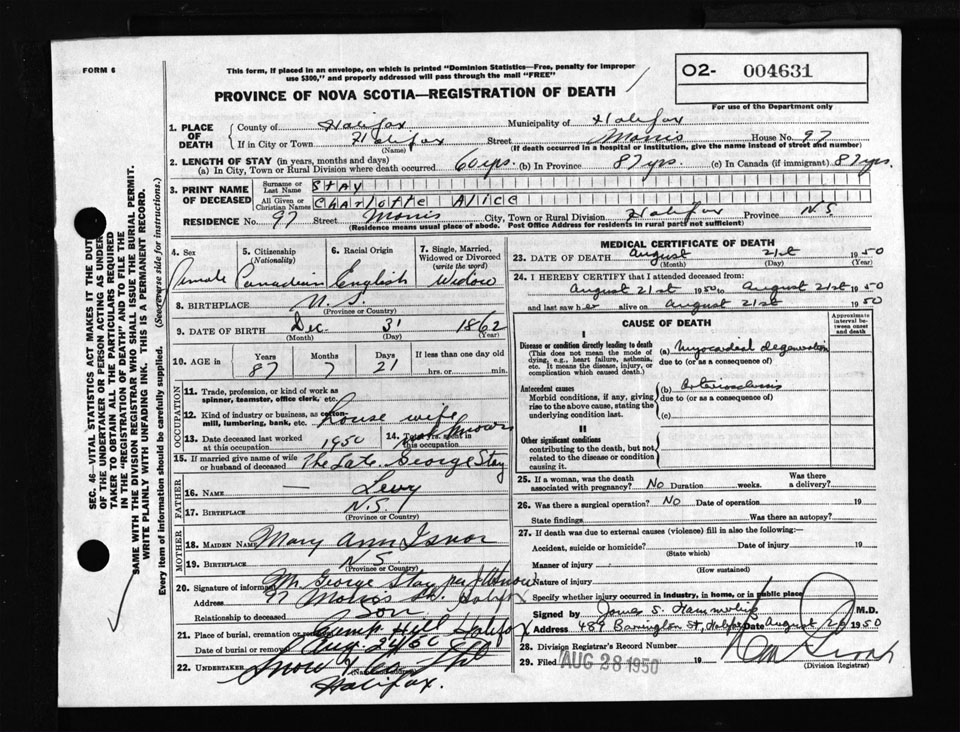 FORM 6
This form, if placed in an envelope, on which is printed "Dominion Statistics—Free, penalty for improper
use $300," and properly addressed will pass through the mail "FREE"
O2- 004631
For use of the Department only
PROVINCE OF NOVA SCOTIA—REGISTRATION OF DEATH
1. PLACE OF DEATH
County of Halifax Municipality of Halifax
If in City or Town Halifax Street Morris House No. 97
(Name) (If death occurred in a hospital or institution, give the name instead of street and number)
2. LENGTH OF STAY (in years, months and days)
(a) In City, Town or Rural Division where death occurred 60 yrs. (b) In Province 87 yrs. (c) In Canada (if immigrant) 87 yrs.
3. PRINT NAME OF DECEASED
Surname or Last Name Stay
All Given or Christian Names Charlotte Alice
RESIDENCE No. 97 Street Morris City, Town or Rural Division Halifax Province N.S
(Residence means usual place of abode. Post Office Address for residents in rural parts not sufficient)
4. Sex Female
5. Citizenship (Nationality) Canadian
6. Racial Origin English
7. Single, Married, Widowed or Divorced (write the word) Widow
8. BIRTHPLACE N.S.
(Province or Country)
9. DATE OF BIRTH Dec. 31 1862
(Month) (Day) (Year)
10. AGE in Years Months Days If less than one day old
87 7 21 hrs. or min.
OCCUPATION
11. Trade, profession, or kind of work as
spinner, teamster, office clerk, etc.
12. Kind of industry or business, as cotton-
mill, lumbering, bank, etc. House wife
13. Date deceased last worked
at this occupation 1950
14. Total yrs. spent in
this occupation
15. If married give name of wife
or husband of deceased The Late George Stay
FATHER
16. NAME Levy
17. BIRTHPLACE N.S.
(Province or Country)
MOTHER
18. MAIDEN NAME Mary Ann Isnor
19. BIRTHPLACE N.S.
(Province or Country)
20. Signature of informant Mr George Stay per
Address 97 Morris St. Halifax
Relationship to deceased Son
21. Place of burial, cremation or removal Camp Hill Halifax
Date of burial or removal Aug. 24/50
22. UNDERTAKER Snow & Co Ltd
(Name and Address)
Halifax.
MEDICAL CERTIFICATE OF DEATH
23. DATE OF DEATH August 21st 1950
(Month) (Day) (Year)
24. I HEREBY CERTIFY that I attended deceased from
August 21st 1950 to August 21st 1950
and last saw her alive on August 21st 1950
CAUSE OF DEATH
Approximate interval between onset and death
I
Disease or condition directly leading to death
(This does not mean the mode of
dying, e.g., heart failure, asthenia,
etc. It means the disease, injury, or
complication which caused death.)
(a) Myocardial degeneration
due to (or as a consequence of)
Antecedent causes
Morbid conditions, if any, giving
rise to the above cause, stating the
underlying condition last.
(b) Arteriosclerosis
due to (or as a consequence of)
(c)
II
Other significant conditions
contributing to the death, but not
related to the disease or condition
causing it.
25. If a woman, was the death
associated with pregnancy? No Duration weeks. Was there a delivery?
26. Was there a surgical operation? No Date of operation 19
State findings Was there an autopsy?
27. If death was due to external causes (violence) fill in also the following:
Accident, suicide or homicide? Date of injury 19
(State which)
Manner of injury
(How sustained)
Nature of injury
Specify whether injury occurred in industry, in home, or in public place
Signed by M.D.
Address 489 Barrington St, Halifax Date August 26 1950
28. Division Registrar's Record Number
29. Filed AUG 28 1950
(Division Registrar)
SEC. 46—VITAL STATISTICS ACT MAKES IT THE DUTY
OF THE UNDERTAKER OR PERSON ACTING AS UNDER-
TAKER TO OBTAIN ALL THE PARTICULARS REQUIRED
IN THE "REGISTRATION OF DEATH" AND TO FILE THE
SAME WITH THE DIVISION REGISTRAR WHO SHALL ISSUE THE BURIAL PERMIT.
WRITE PLAINLY WITH UNFADING INK. THIS IS A PERMANENT RECORD.
Every item of information should be carefully supplied. (See reverse side for instructions.)